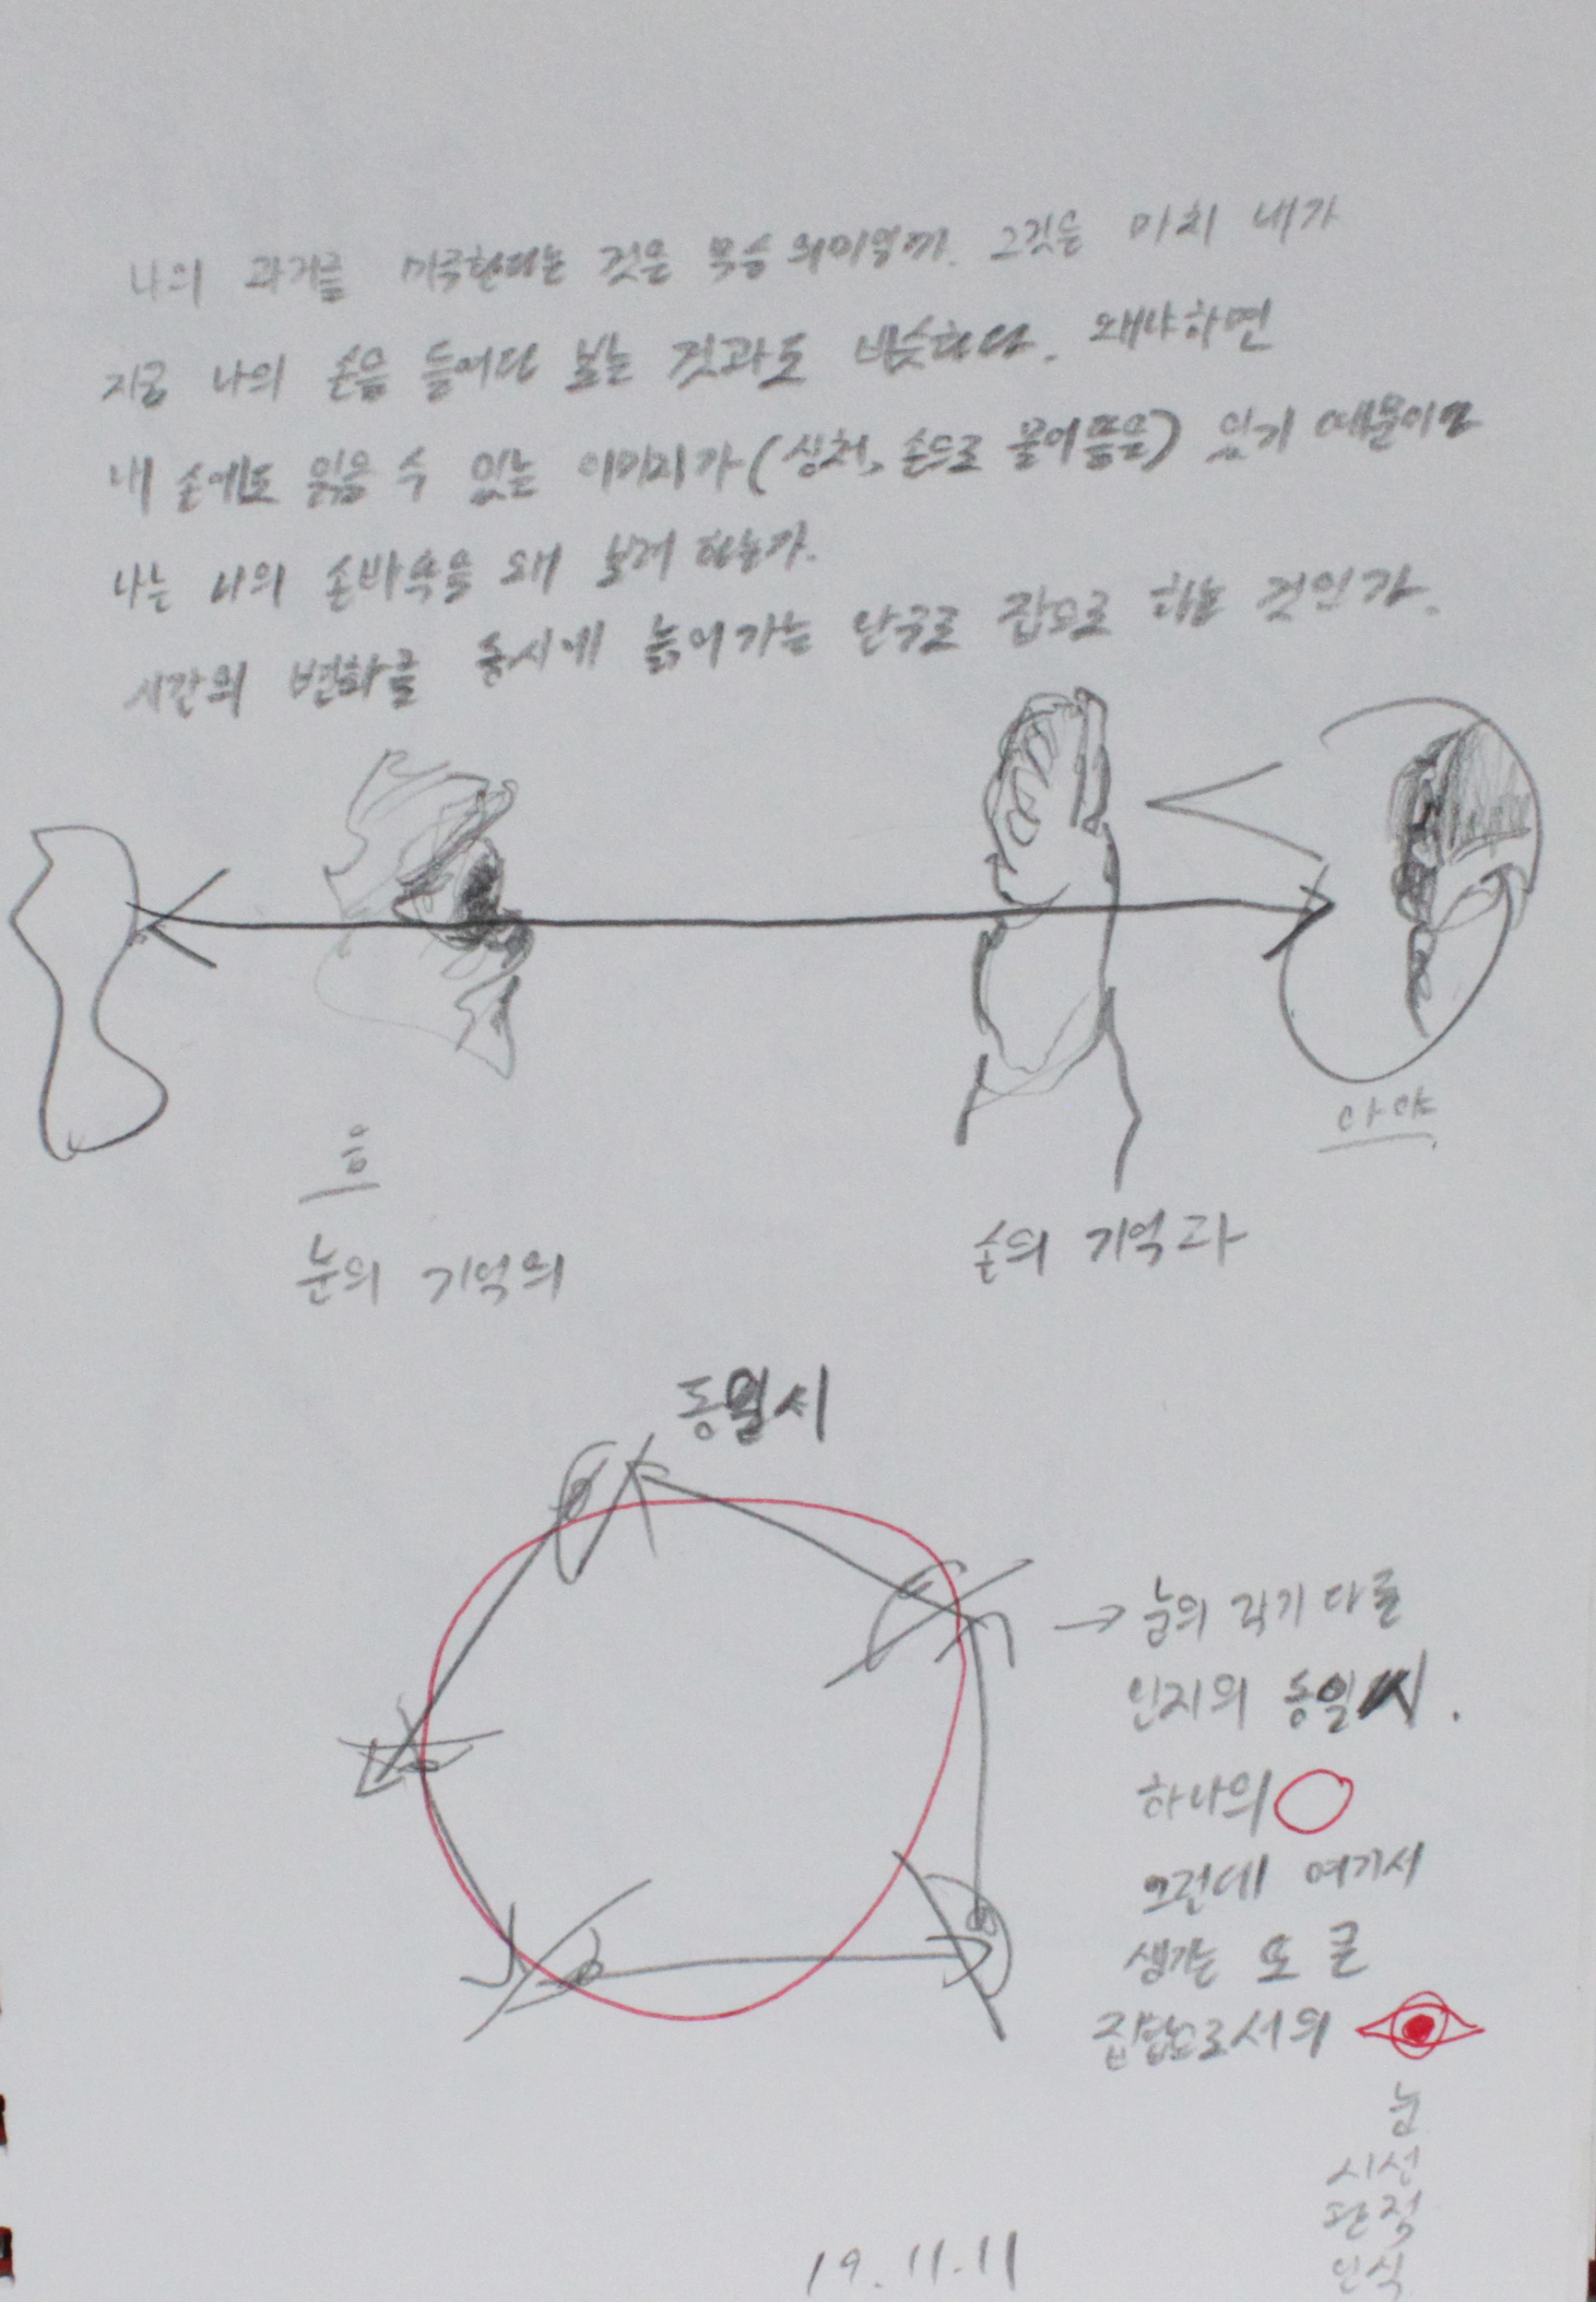 나의 과거를 기록한다는 것은 무슨 의미일까. 그것은 마치 내가
지금 나의 손을 들여다 보는 것과도 비슷하다. 왜냐하면
내 손에도 읽을 수 있는 이미지가 (상처, 손으로 물어뜯은) 있기 때문이고
나는 나의 손바닥을 왜 보려 하는가.
시간의 변화를 동시에 늙어가는 하는 것인가.
아야
흠
눈의 기억의
손의 기억과
동일시
→ 눈의 각기 다른
인지의 동일시.
하나의
그런데 여기서
생기는 또 큰
집합으로서의
눈
시선
관점
인식
19.11.11